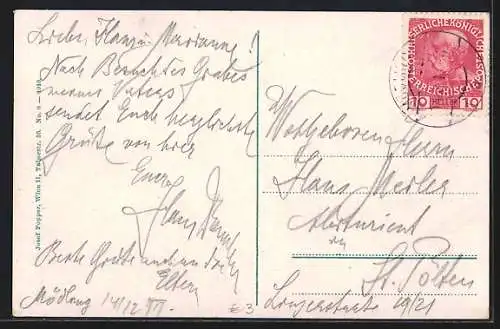 Liebe Hansi u. Marianne!
Nach Besuch des Grabes
meines Vaters
sendet Euch herzlichste
Grüße von hier
Euer
Hans
Beste Grüße auch an die
Eltern
Mödling 14/12
€ 3
Josef Popper, Wien II, Taborstr. 30. No. 8 –
KAISERLICHE KÖNIGLICHE
ÖSTERREICHISCHE
10 HELLER 10
Wohlgeboren Herrn
Hans
Abiturient
in
St. Pölten
19/21